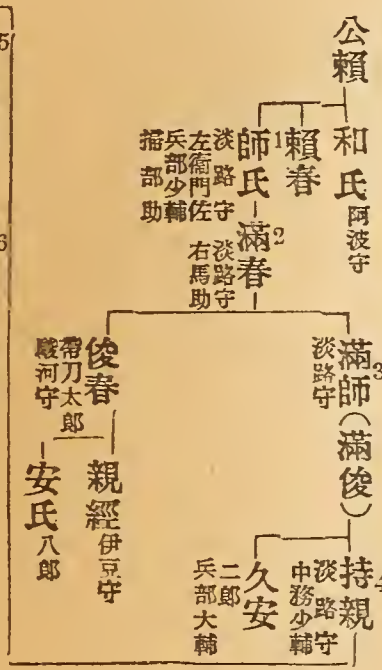 公賴
和氏 阿波守
賴春
1
師氏
淡路守
左衞門佐
兵部少輔
掃部助
2
滿春
淡路守
右馬助
3
滿師(滿俊)
淡路守
俊春
帶刀太郎
駿河守
親經 伊豆守
安氏 八郎
4
持親
淡路守
中務少輔
久安
二郎
兵部大輔
5
6